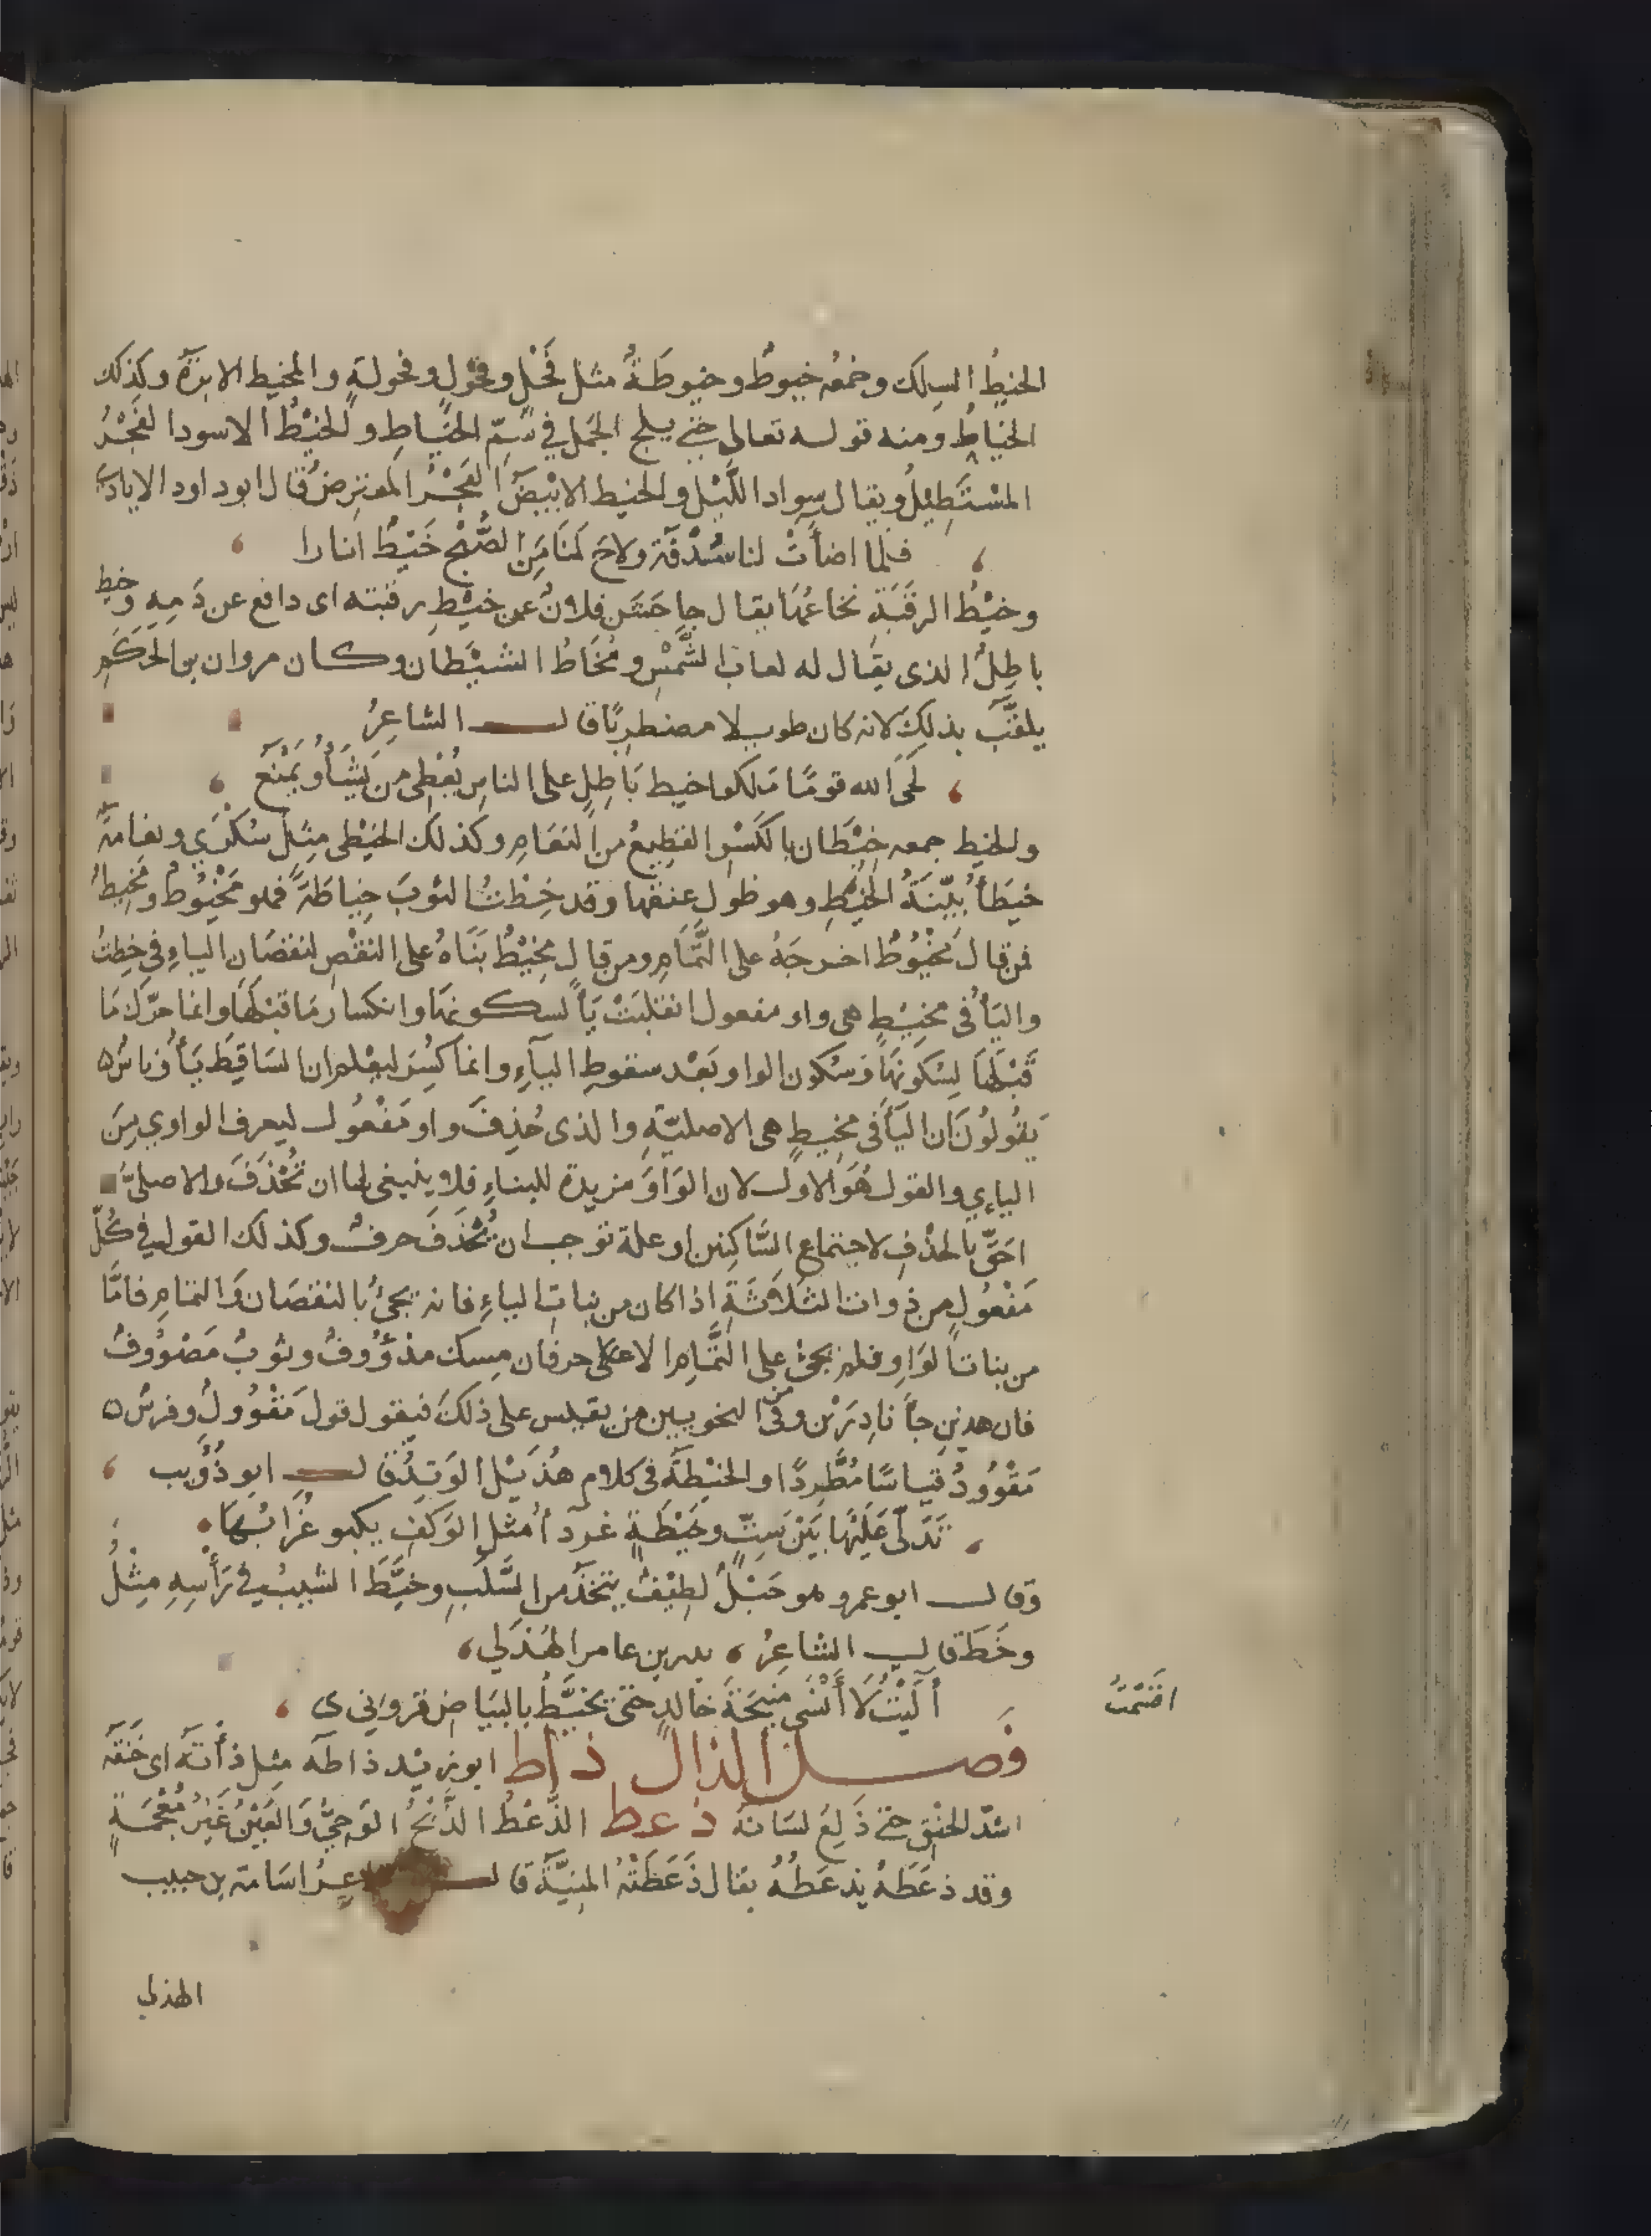 الخيطُ السلك وجمعُه خيوطٌ وخيوطَةٌ مثل فَحْلٍ وفحُولٍ وفحولةٍ والمخيط الابرَةُ وكذلك
الخياطُ ومنه قوله تعالى حتى يلج الجمل في سَمِّ الخِيَاطِ والخيْطُ الاسود الفَجْرُ
المسْتَطِيْلُ ويقال سواد اللَّيْل والخيط الابْيَضُ الفَجْرُ المعترضُ قال ابو داود الايادى
فلما اضأتْ لنا سُدْفَة ولاحَ لنَا مِنَ الصُّبْحِ خَيْطٌ انارا
وخيْطُ الرقَبَةِ نخاعُهَا يقال جاحَشَ فلانٌ عن خيْطِ رقبته اى دافع عن دَمِهِ وخيط
باطِلٍ الذى يقال له لعابُ الشَّمْسِ ومُخَاطُ الشيْطان وكان مروان بن الحَكَمِ
يلقَّب بذلك لانه كان طويلا مضطربًا قال الشاعِرُ
لحَى الله قومًا مَلكوا خيط بَاطِلٍ على الناسِ يُعْطِى من يَشَأُ ويَمْنَع
والخيط جمعه خِيْطَان بالكَسْرِ القطِيعُ من النعَامِ وكذلك الخَيْطى مِثل سَكْرَي ونعَامَةٌ
خيَطَأُ بيِّنَةُ الخَيَطِ وهو طول عنقها وقد خِطْتُ الثوبَ خِياطَةً فهو مَخْيُوطٌ ومَخِيطٌ
فمن قال مَخْيُوطٌ اخرجَهُ على التَّمَامِ ومن قال مَخِيْطٌ بَنَاهُ على النقْصِ لنقصَان الياءِ في خِطتُ
واليَأُ في مخيْطٍ هى واو مفعول انقلبَتْ يَأً لسكونهَا وانكسار مَا قبْلهَا وانما حرّك مَا
قَبْلهَا لِسُكونهَا وَسُكون الواو بَعْد سقوطِ اليآءِ وانما كُسِرَ ليعْلم ان السَاقِطَ يَأُ وناسٌ
يَقُولُونَ ان اليَأَ في مخِيطٍ هى الاصليّة والذى حُذِفَ واو مَفْعُول ليعرف الواوي مِنَ
الياءي والقول هُوَ الاول لان الوَاوَ مزيدة للبناءِ فلا ينبغى لها ان تُحْذَفَ والاصلىّ
احَقُّ بالحذْفِ لاجتماع السَّاكِنين او علة توجب ان يُحْذَفَ حرفٌ وكذلك القول في كُلّ
مَفْعُولٍ من ذوات الثلاثَةِ اذا كان من بنات الياءِ فانه يجئُ بالنقصَان وَالتمَامِ فامَّا
من بنات الوَاوِ فلم يجئ على التَّمَامِ الا حرفان مِسك مذْوُوفٌ وثوبٌ مَصْوُوفٌ
فان هدينِ جآَ نادِرَيْن وفى النحويين من يقيس على ذلك فيقول قول مَقْوُولٌ وفرسٌ
مَقْوُودٌ قياسًا مُطَّرِدًا والخَيْطَة فى كلام هُذَيْل الوَتِدُ قال ابو ذُؤَيب
تَدَلّى عَلَيْهَا بَيْنَ سِبٍّ وخَيْطَةٍ غردآُ مثل الوَكفِ يكبو غُرَابُهَا
وقال ابو عمرو هو حَبْلٌ لطِيْفٌ يتخَذُ من السَّلَبِ وخيَّطَ الشيبُ في رَأْسِهِ مِثْلُ
وخَطَ قال الشاعِرُ بدر بن عامر الهُذَلي
اقسمتُ
آلَيْتُ لَا أَنْسَى مَنِيْحَةَ خالدٍ حتى يخيَّطُ بالبيَاضِ قروني ى
فصل الذال ذاط ابو زيْد ذاطه مثل ذأَتَه اى خَنَقَه
اشدّ الخنْقِ حتى دَلِعَ لسَانه ذعط الذّعْطُ الذَّبْحُ الوَحِيُّ وَالعَيْنُ غَيرُ مُعْجَمَةٍ
وقد ذعَطَهُ يذعَطُهُ يقال ذَعَطَتْهُ المَنِيَّة قال اسَامة بن حبيب
الهذلي